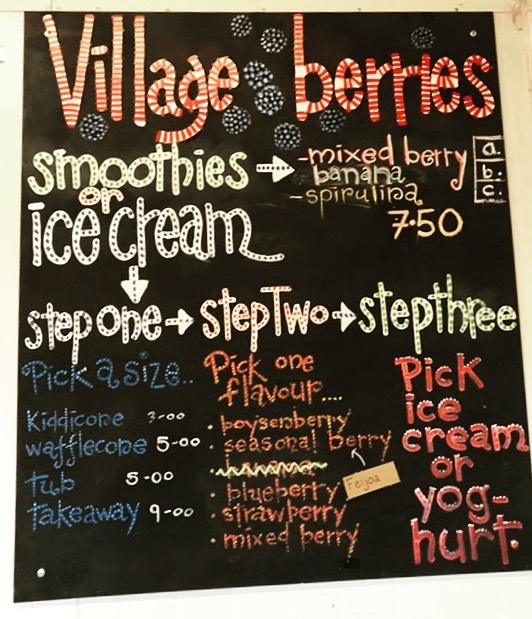 Village berries
smoothies
or
ice cream
-mixed berry
banana
-spirulina
7.50
a.
b.
c.
step one
step Two
step three
Pick a size..
Kiddicone 3-00
wafflecone 5-00
tub 5-00
takeaway 9-00
Pick one
flavour....
· boysenberry
· seasonal berry
· banana
· blueberry
· strawberry
· mixed berry
Feijoa
Pick
ice
cream
or
yog-
hurt.